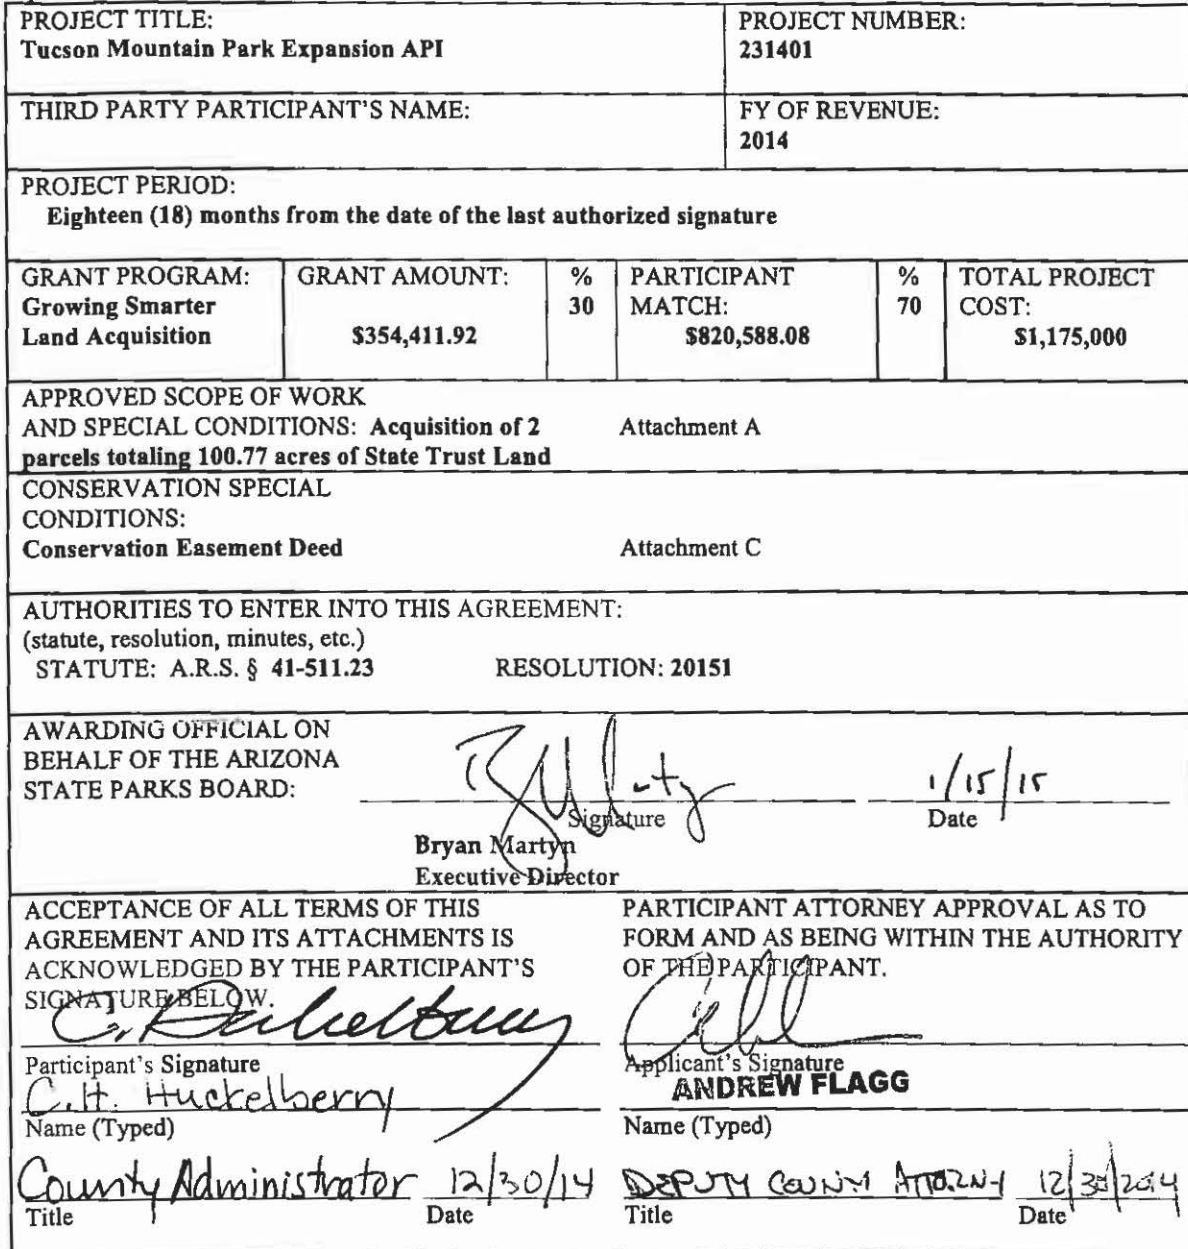 PROJECT TITLE:
Tucson Mountain Park Expansion API
PROJECT NUMBER:
231401
THIRD PARTY PARTICIPANT'S NAME:
FY OF REVENUE:
2014
PROJECT PERIOD:
Eighteen (18) months from the date of the last authorized signature
GRANT PROGRAM:
Growing Smarter
Land Acquisition
GRANT AMOUNT:
$354,411.92
%
30
PARTICIPANT
MATCH:
$820,588.08
%
70
TOTAL PROJECT
COST:
$1,175,000
APPROVED SCOPE OF WORK
AND SPECIAL CONDITIONS: Acquisition of 2
parcels totaling 100.77 acres of State Trust Land
Attachment A
CONSERVATION SPECIAL
CONDITIONS:
Conservation Easement Deed
Attachment C
AUTHORITIES TO ENTER INTO THIS AGREEMENT:
(statute, resolution, minutes, etc.)
STATUTE: A.R.S. § 41-511.23 RESOLUTION: 20151
AWARDING OFFICIAL ON
BEHALF OF THE ARIZONA
STATE PARKS BOARD:
1/15/15
Signature
Date
Bryan Martyn
Executive Director
ACCEPTANCE OF ALL TERMS OF THIS
AGREEMENT AND ITS ATTACHMENTS IS
ACKNOWLEDGED BY THE PARTICIPANT'S
SIGNATURE BELOW.
Participant's Signature
C.H. Huckelberry
Name (Typed)
County Administrator 12/30/14
Title Date
PARTICIPANT ATTORNEY APPROVAL AS TO
FORM AND AS BEING WITHIN THE AUTHORITY
OF THE PARTICIPANT.
Applicant's Signature
ANDREW FLAGG
Name (Typed)
DEPUTY COUNTY
Title Date